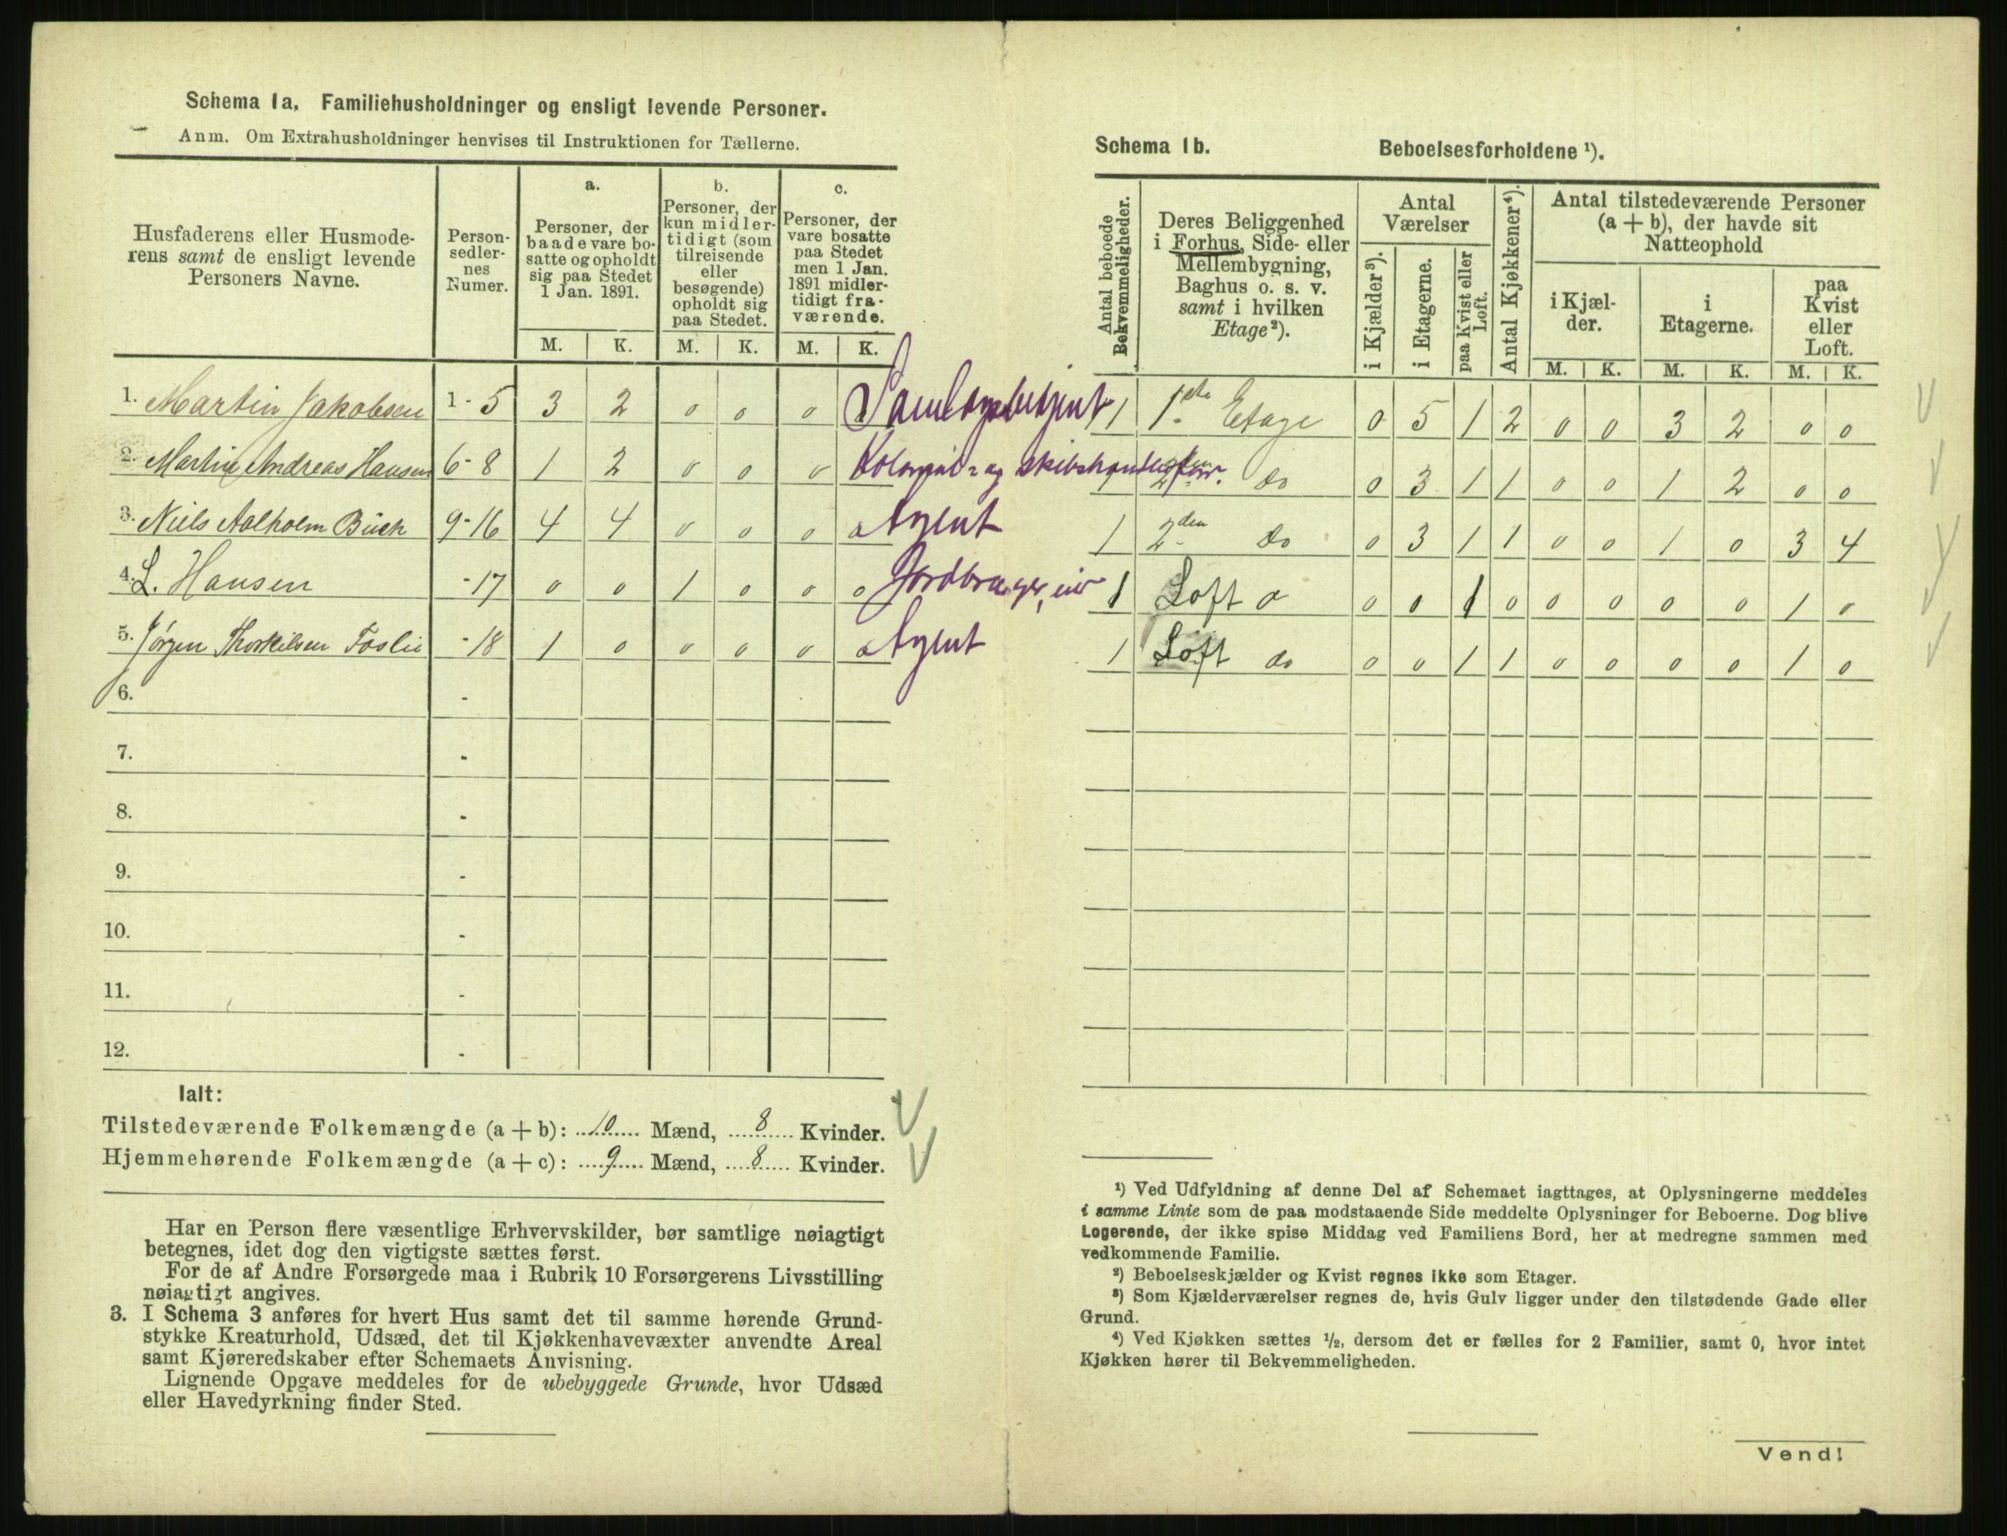 Schema 1a. Familiehusholdninger og ensligt levende Personer.
Anm. Om Extrahusholdninger henvises til Instruktionen for Tællerne.
Husfaderens eller Husmode-
rens samt de ensligt levende
Personers Navne.
Person-
sedler-
nes
Numer.
a.
Personer, der
baade vare bo-
satte og opholdt
sig paa Stedet
1 Jan. 1891.
b.
Personer, der
kun midler-
tidigt (som
tilreisende
eller
besøgende)
opholdt sig
paa Stedet.
c.
Personer, der
vare bosatte
paa Stedet
men 1 Jan.
1891 midler-
tidigt fra-
værende.
M. K. M. K. M. K.
1. Martin Jakobsen 1 - 5 3 2 0 0 0
2. Martin Andreas Hansen 6 - 8 1 2 0 0 0 Kolonial- og skibshandler
3. Niels Aalholm Buch 9 - 16 4 4 0 0 0 0 Agent
4. L. Hansen - 17 0 0 1 0 0 0 Jordbruger, eier
5. Jørgen Thorkilsen Foslie - 18 1 0 0 0 0 0 Agent
6. -
7. -
8. -
9. -
10. -
11. -
12. -
Ialt:
Tilstedeværende Folkemængde (a + b): 10 Mænd, 8 Kvinder.
Hjemmehørende Folkemængde (a + c): 9 Mænd, 8 Kvinder.
Har en Person flere væsentlige Erhvervskilder, bør samtlige nøiagtigt
betegnes, idet dog den vigtigste sættes først.
For de af Andre Forsørgede maa i Rubrik 10 Forsørgerens Livsstilling
nøiagtigt angives.
3. I Schema 3 anføres for hvert Hus samt det til samme hørende Grund-
stykke Kreaturhold, Udsæd, det til Kjøkkenhavevæxter anvendte Areal
samt Kjøreredskaber efter Schemaets Anvisning.
Lignende Opgave meddeles for de ubebyggede Grunde, hvor Udsæd
eller Havedyrkning finder Sted.
Schema 1b. Beboelsesforholdene ¹).
Antal beboede
Bekvemmeligheder.
Deres Beliggenhed
i Forhus, Side- eller
Mellembygning,
Baghus o. s. v.
samt i hvilken
Etage²).
Antal
Værelser
i Kjælder³).
i Etagerne.
paa Kvist eller
Loft.
Antal Kjøkkener⁴).
Antal tilstedeværende Personer
(a + b), der havde sit
Natteophold
i Kjæl-
der.
i
Etagerne.
paa
Kvist
eller
Loft.
M. K. M. K. M. K.
1 1ste Etage 0 5 1 2 0 0 3 2 0 0
2den do 0 3 1 1 0 0 1 2 0 0
1 2den do 0 3 1 1 0 0 1 0 3 4
1 Loft 0 0 1 0 0 0 0 0 1 0
1 Loft do 0 0 1 1 0 0 0 0 1 0
¹) Ved Udfyldning af denne Del af Schemaet iagttages, at Oplysningerne meddeles
i samme Linie som de paa modstaaende Side meddelte Oplysninger for Beboerne. Dog blive
Logerende, der ikke spise Middag ved Familiens Bord, her at medregne sammen med
vedkommende Familie.
²) Beboelseskjælder og Kvist regnes ikke som Etager.
³) Som Kjælderværelser regnes de, hvis Gulv ligger under den tilstødende Gade eller
Grund.
⁴) Ved Kjøkken sættes ½, dersom det er fælles for 2 Familier, samt 0, hvor intet
Kjøkken hører til Bekvemmeligheden.
Vend!